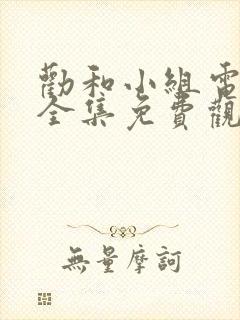 勸和小組電
全集免費觀
無量摩訶